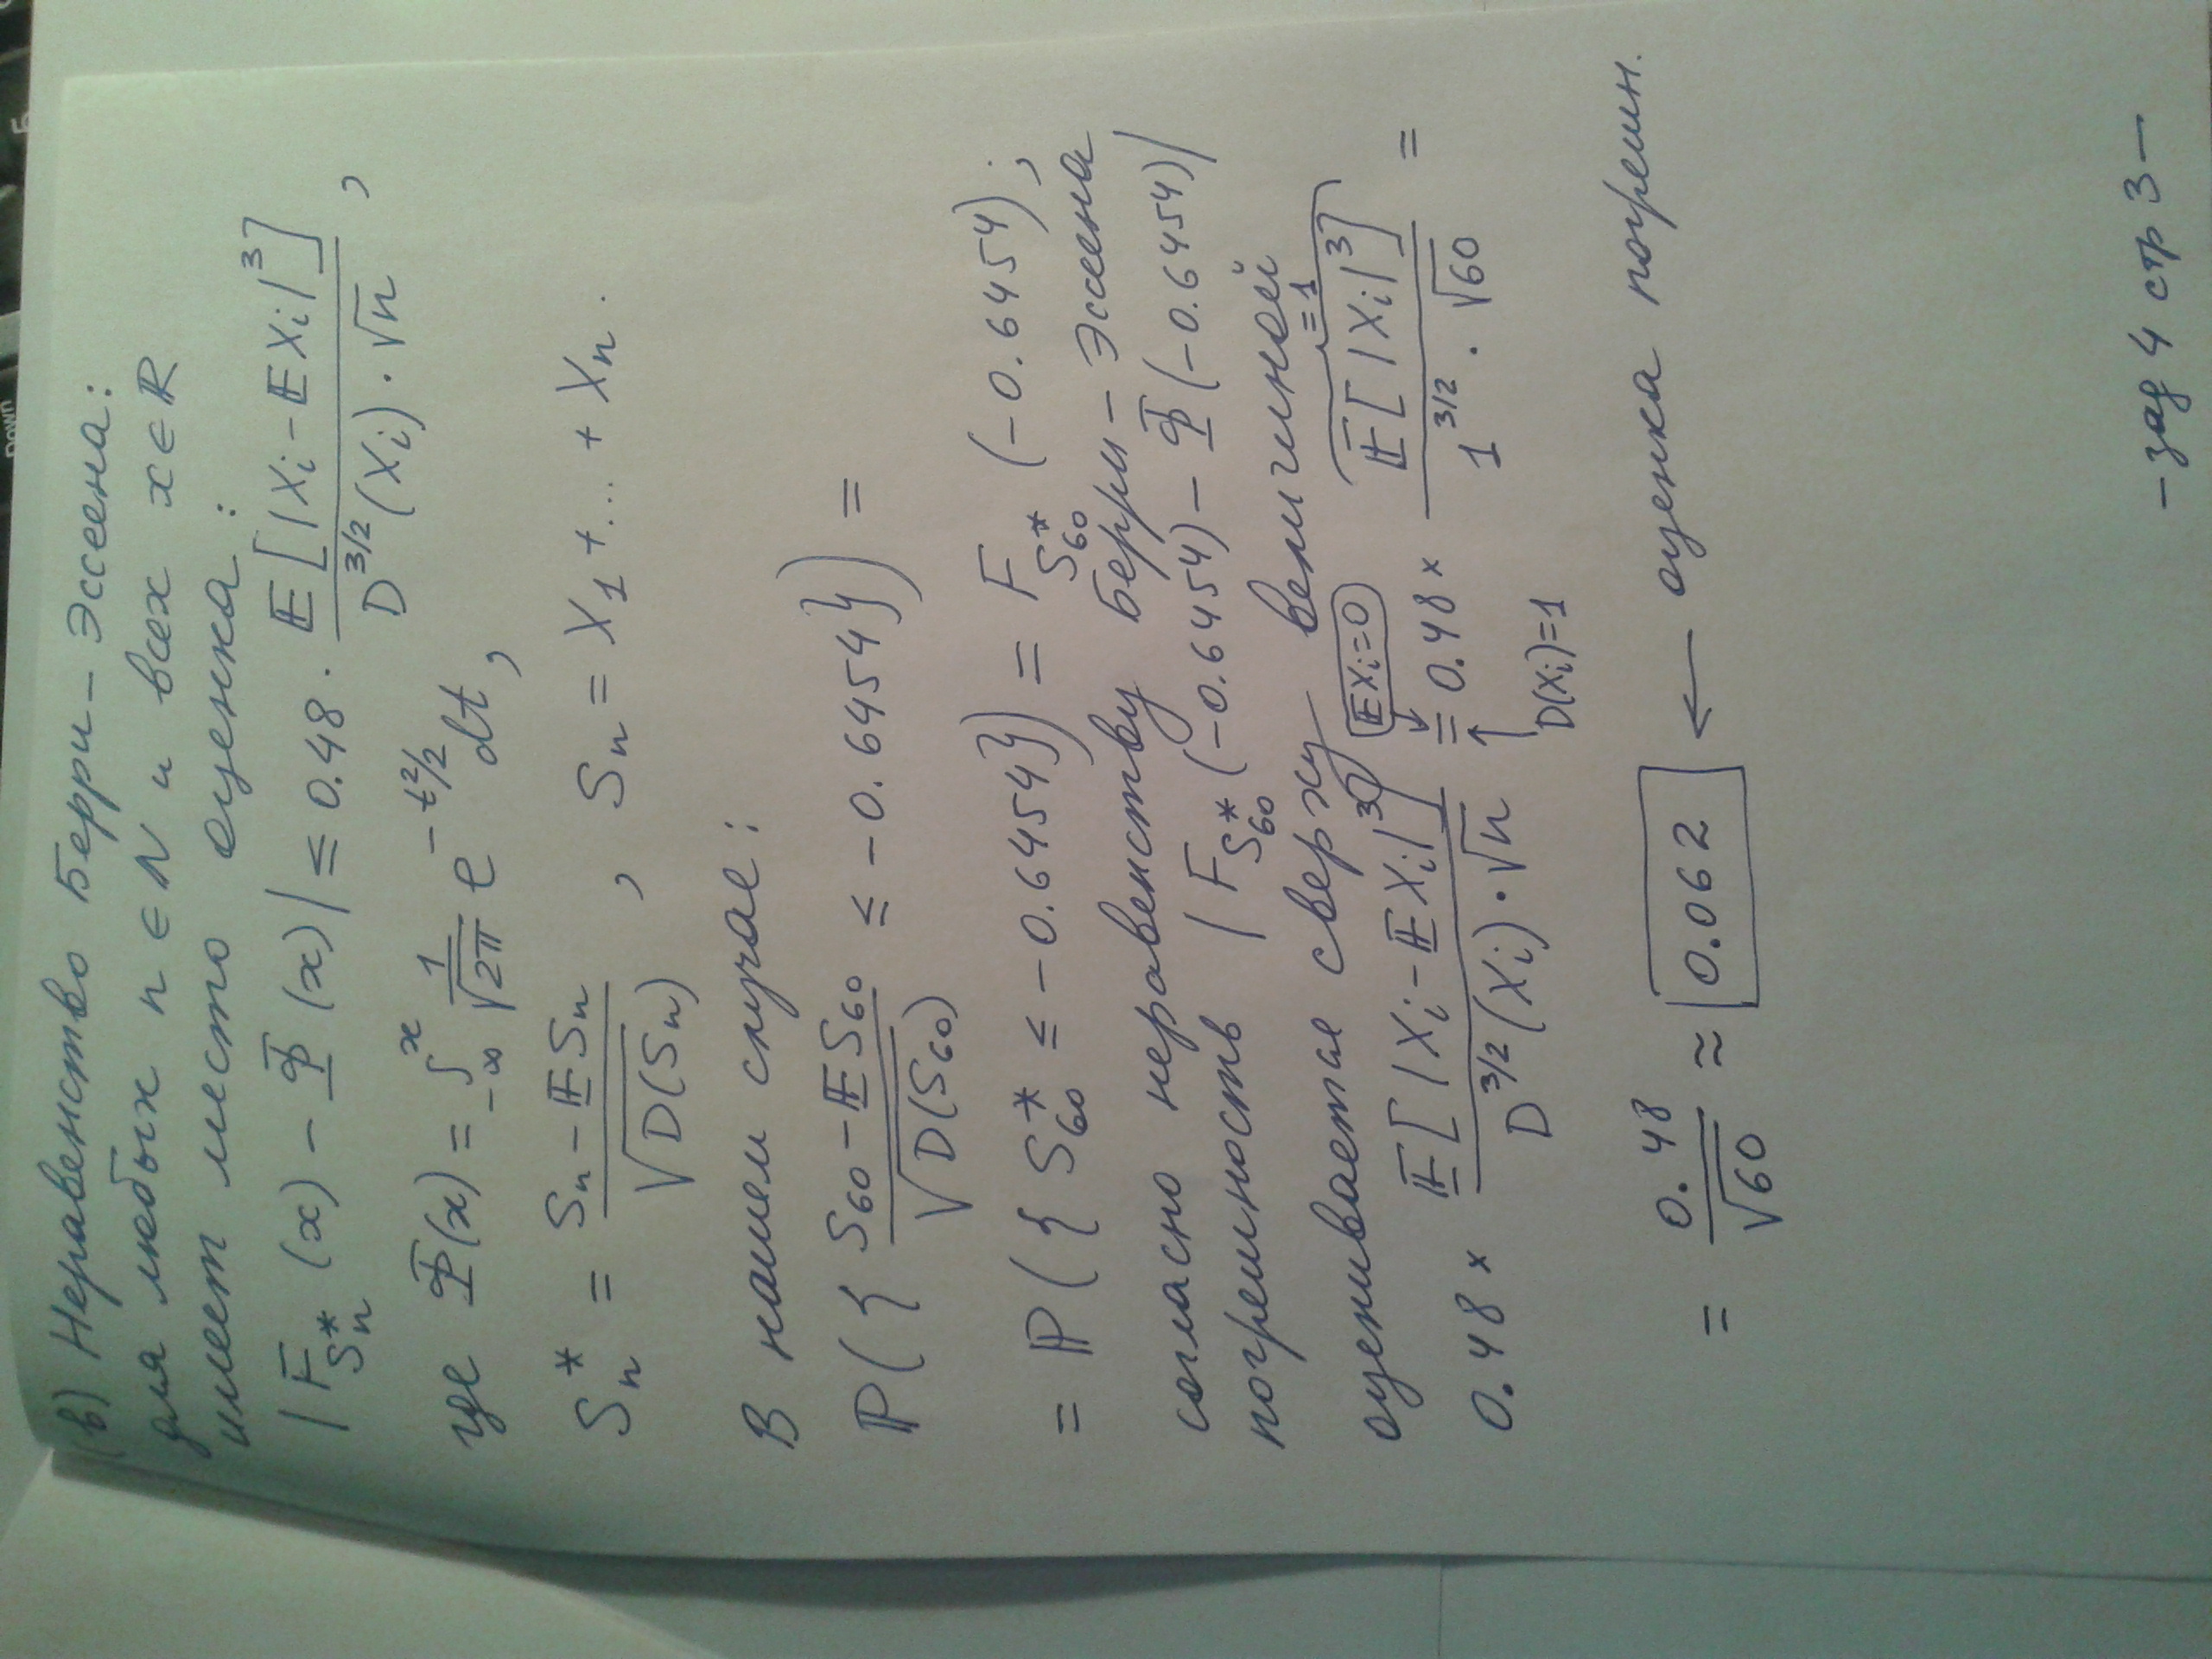 Down
Б
(в) Неравенство Берри – Эссеена:
для любых n ∈ N и всех x ∈ ℝ
имеет место оценка :
| F_{S_n^*} (x) – Φ (x) | ≤ 0.48 · 𝔼[|X_i – 𝔼X_i|^3] / (D^{3/2}(X_i) · √n) ,
где Φ(x) = ∫_{-∞}^{x} 1/√(2π) e^{-t²/2} dt ,
S_n^* = (S_n – 𝔼S_n) / √(D(S_n)) , S_n = X_1 + ... + X_n .
В нашем случае :
ℙ({ (S_60 – 𝔼S_60) / √(D(S_60)) ≤ –0.6454}) =
= ℙ({ S_60^* ≤ –0.6454}) = F_{S_60^*} (–0.6454) ;
согласно неравенству Берри – Эссеена
погрешность | F_{S_60^*} (–0.6454) – Φ (–0.6454) |
оценивается сверху величиной
0.48 × 𝔼[|X_i – 𝔼X_i|^3] / (D^{3/2}(X_i) · √n) = 0.48 × 𝔼[|X_i|^3] / (1^{3/2} · √60) =
𝔼X_i = 0
= 1
D(X_i) = 1
= 0.48 / √60 ≈ 0.062 ← оценка погрешн.
– зад 4 стр 3 –